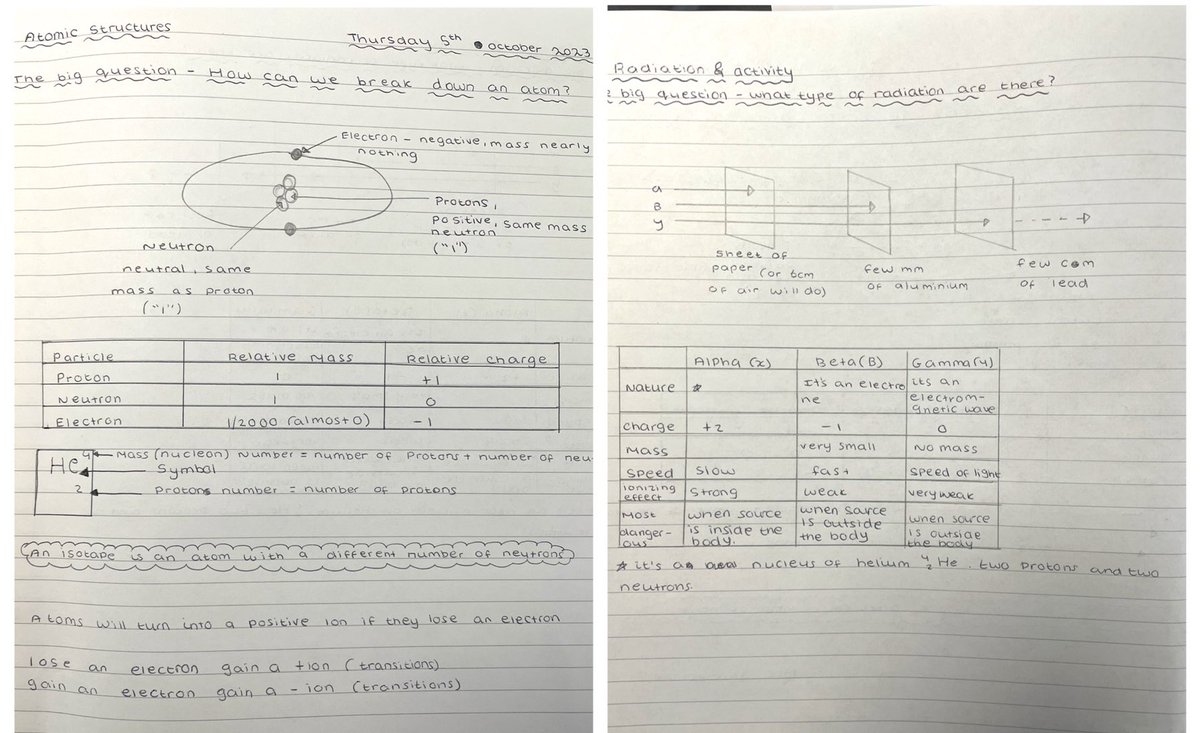 Atomic Structures
Thursday 5th October 2023
The big question - How can we break down an atom?
Electron - negative, mass nearly
nothing
Protons,
Positive, same mass
neutron
("1")
Neutron
neutral, same
mass as proton
("1")
Particle Relative Mass Relative charge
Proton 1 +1
Neutron 1 0
Electron 1/2000 (almost 0) -1
He 4 Mass (nucleon) Number = number of Protons + number of neu
Symbol
2 Protons number = number of protons
(An isotape is an atom with a different number of neutron?)
Atoms will turn into a positive ion if they lose an electron
lose an electron gain a +ion (transitions)
gain an electron gain a - ion (transitions)
Radiation & activity
big question - what type of radiation are there?
a
B
y
sheet of
paper (or 6cm
of air will do)
few mm
of aluminium
few com
of lead
Alpha (x) Beta (B) Gamma (y)
Nature * It's an electro
ne
its an
electrom-
gnetic wave
charge +2 -1 0
Mass very small No mass
Speed slow fast speed of light
Ionizing
effect
strong weak very weak
Most
danger-
ous
when source
is inside the
body.
when source
is outside
the body
when source
is outside
the body
* it's a nucleus of helium 4 2 He. two protons and two
neutrons.